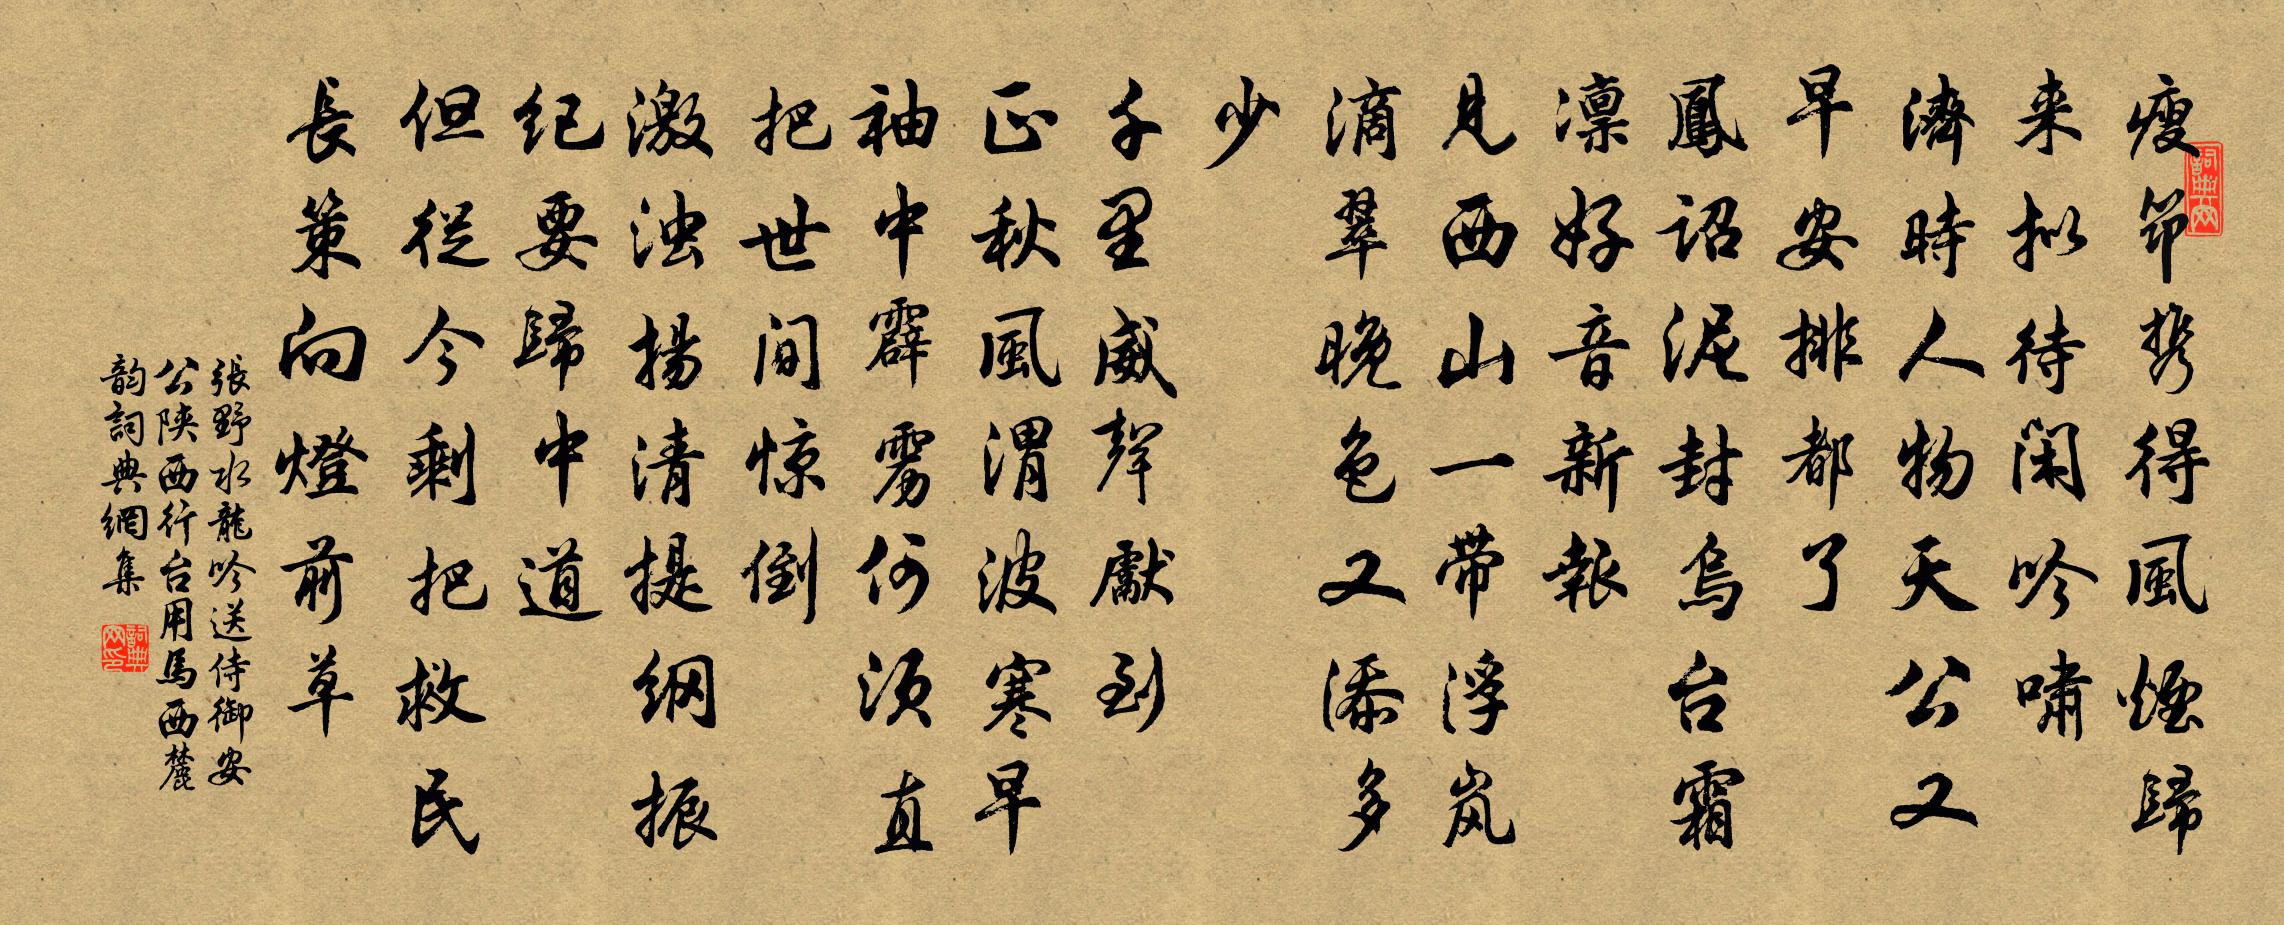 瘦筇携得風煙歸
来拟待闲吟嘯
濟時人物天公又
早安排都了
鳳詔泥封烏台霜
凛好音新報
見西山一带浮岚
滴翠晚色又添多
少
千里威聲獻到
正秋風渭波寒早
袖中霹雳何须直
把世间惊倒
激浊揚清提纲振
纪要歸中道
但從今剩把救民
長策向燈前草
張野水龍吟送侍御安
公陕西行台用馬西麓
韵詞典網集
詞典网
詞典网印